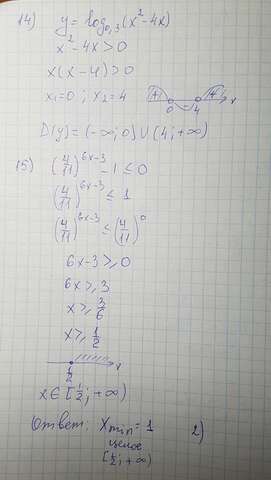 14) y = log₀,₃(x² - 4x)
x² - 4x > 0
x(x - 4) > 0
x₁ = 0 ; x₂ = 4
+ - +
0 4 x
D(y) = (-∞; 0) ∪ (4; +∞)
15) (4/11)^(6x-3) - 1 ≤ 0
(4/11)^(6x-3) ≤ 1
(4/11)^(6x-3) ≤ (4/11)^0
6x - 3 ≥ 0
6x ≥ 3
x ≥ 3/6
x ≥ 1/2
1/2 x
x ∈ [1/2; +∞)
Ответ: Xmin = 1 2)
целое
[1/2; +∞)